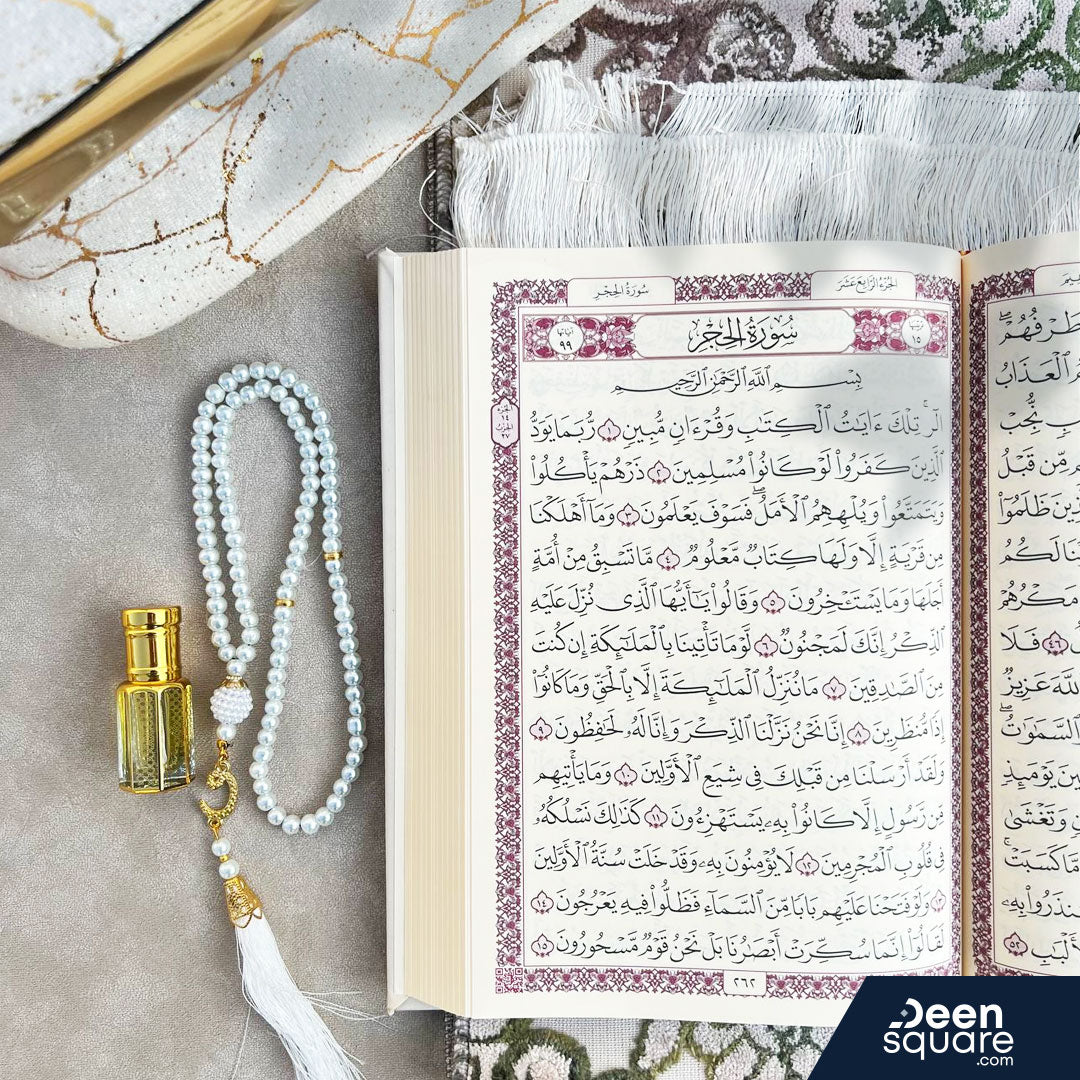 الجزء الرابع عشر
سورة الحجر
ترتيبها ١٥
سُورَةُ الحِجْرِ
آياتها ٩٩
بِسْمِ ٱللَّهِ ٱلرَّحْمَٰنِ ٱلرَّحِيمِ
الجزء ١٤ الحزب ٢٧
الٓر ۚ تِلْكَ ءَايَٰتُ ٱلْكِتَٰبِ وَقُرْءَانٍ مُّبِينٍ ١ رُّبَمَا يَوَدُّ
ٱلَّذِينَ كَفَرُوا۟ لَوْ كَانُوا۟ مُسْلِمِينَ ٢ ذَرْهُمْ يَأْكُلُوا۟
وَيَتَمَتَّعُوا۟ وَيُلْهِهِمُ ٱلْأَمَلُ ۖ فَسَوْفَ يَعْلَمُونَ ٣ وَمَآ أَهْلَكْنَا
مِن قَرْيَةٍ إِلَّا وَلَهَا كِتَابٌ مَّعْلُومٌ ٤ مَّا تَسْبِقُ مِنْ أُمَّةٍ
أَجَلَهَا وَمَا يَسْتَـْٔخِرُونَ ٥ وَقَالُوا۟ يَٰٓأَيُّهَا ٱلَّذِى نُزِّلَ عَلَيْهِ
ٱلذِّكْرُ إِنَّكَ لَمَجْنُونٌ ٦ لَّوْ مَا تَأْتِينَا بِٱلْمَلَٰٓئِكَةِ إِن كُنتَ
مِنَ ٱلصَّٰدِقِينَ ٧ مَا نُنَزِّلُ ٱلْمَلَٰٓئِكَةَ إِلَّا بِٱلْحَقِّ وَمَا كَانُوٓا۟
إِذًا مُّنظَرِينَ ٨ إِنَّا نَحْنُ نَزَّلْنَا ٱلذِّكْرَ وَإِنَّا لَهُۥ لَحَٰفِظُونَ ٩
وَلَقَدْ أَرْسَلْنَا مِن قَبْلِكَ فِى شِيَعِ ٱلْأَوَّلِينَ ١٠ وَمَا يَأْتِيهِم
مِّن رَّسُولٍ إِلَّا كَانُوا۟ بِهِۦ يَسْتَهْزِءُونَ ١١ كَذَٰلِكَ نَسْلُكُهُۥ
فِى قُلُوبِ ٱلْمُجْرِمِينَ ١٢ لَا يُؤْمِنُونَ بِهِۦ وَقَدْ خَلَتْ سُنَّةُ ٱلْأَوَّلِينَ
١٣ وَلَوْ فَتَحْنَا عَلَيْهِم بَابًا مِّنَ ٱلسَّمَآءِ فَظَلُّوا۟ فِيهِ يَعْرُجُونَ ١٤
لَقَالُوٓا۟ إِنَّمَا سُكِّرَتْ أَبْصَٰرُنَا بَلْ نَحْنُ قَوْمٌ مَّسْحُورُونَ ١٥
٢٦٢
طَرْفُهُمْ ۖ
ٱلْعَذَابُ
نُّجِبْ
مِّن قَبْلُ
ظَلَمُوٓا۟
لَكُمُ
مَكْرُهُمْ
٤٦ فَلَا
ٱللَّهَ عَزِيزٌ
وَٱلسَّمَٰوَٰتُ ۖ
يَوْمَئِذٍ
وَتَغْشَىٰ
مَّا كَسَبَتْ ۚ
وَلِيُنذَرُوا۟ بِهِۦ
ٱلْأَلْبَٰبِ ٥٢
Deen
square
.com